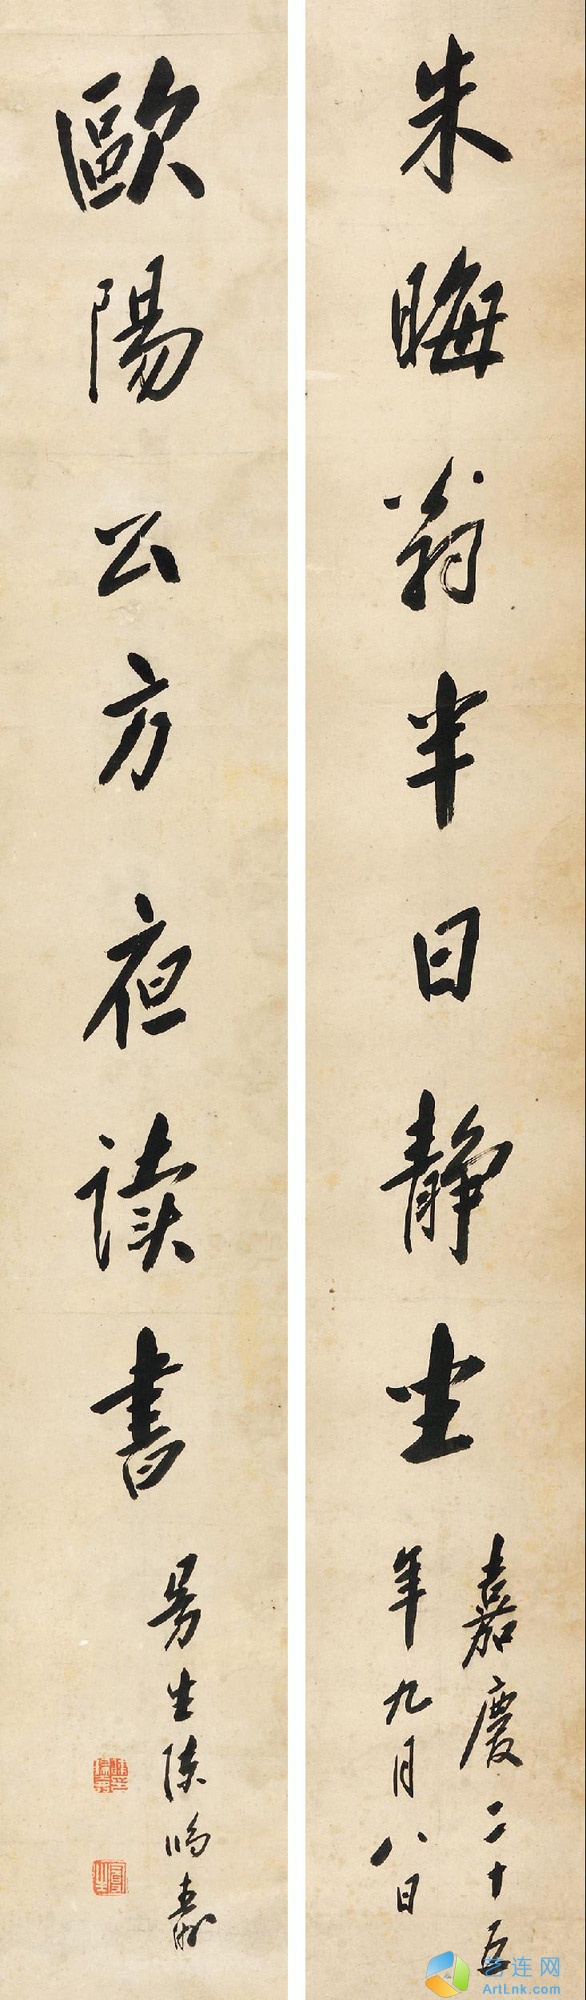 朱晦翁半日静坐
嘉慶二十五
年九月八日
歐陽公方夜读書
曼生陳鴻壽
艺连网
ArtLnk.com